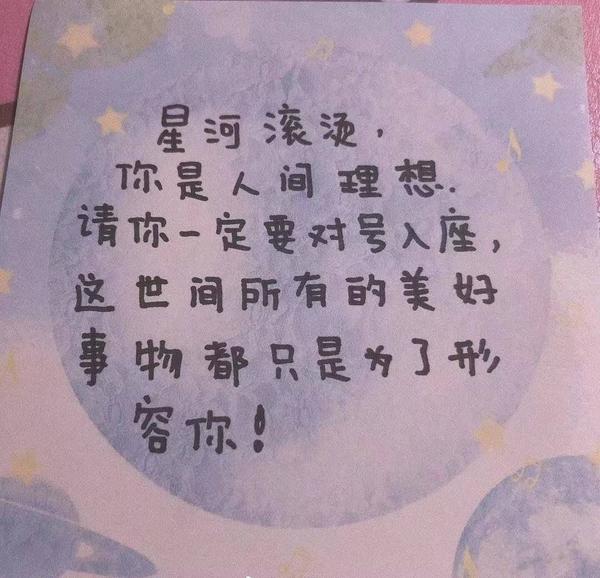 星河滚烫，
你是人间理想.
请你一定要对号入座，
这世间所有的美好
事物都只是为了形
容你！